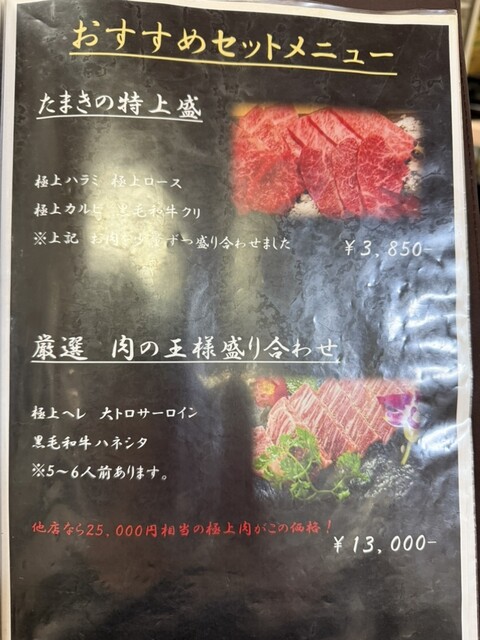 おすすめセットメニュー
たまきの特上盛
極上ハラミ 極上ロース
極上カルビ 黒毛和牛クリ
※上記 お肉 ずつ盛り合わせました
¥3,850-
厳選 肉の王様盛り合わせ
極上ヘレ 大トロサーロイン
黒毛和牛ハネシタ
※5~6人前あります。
他店なら25,000円相当の極上肉がこの価格!
¥13,000-